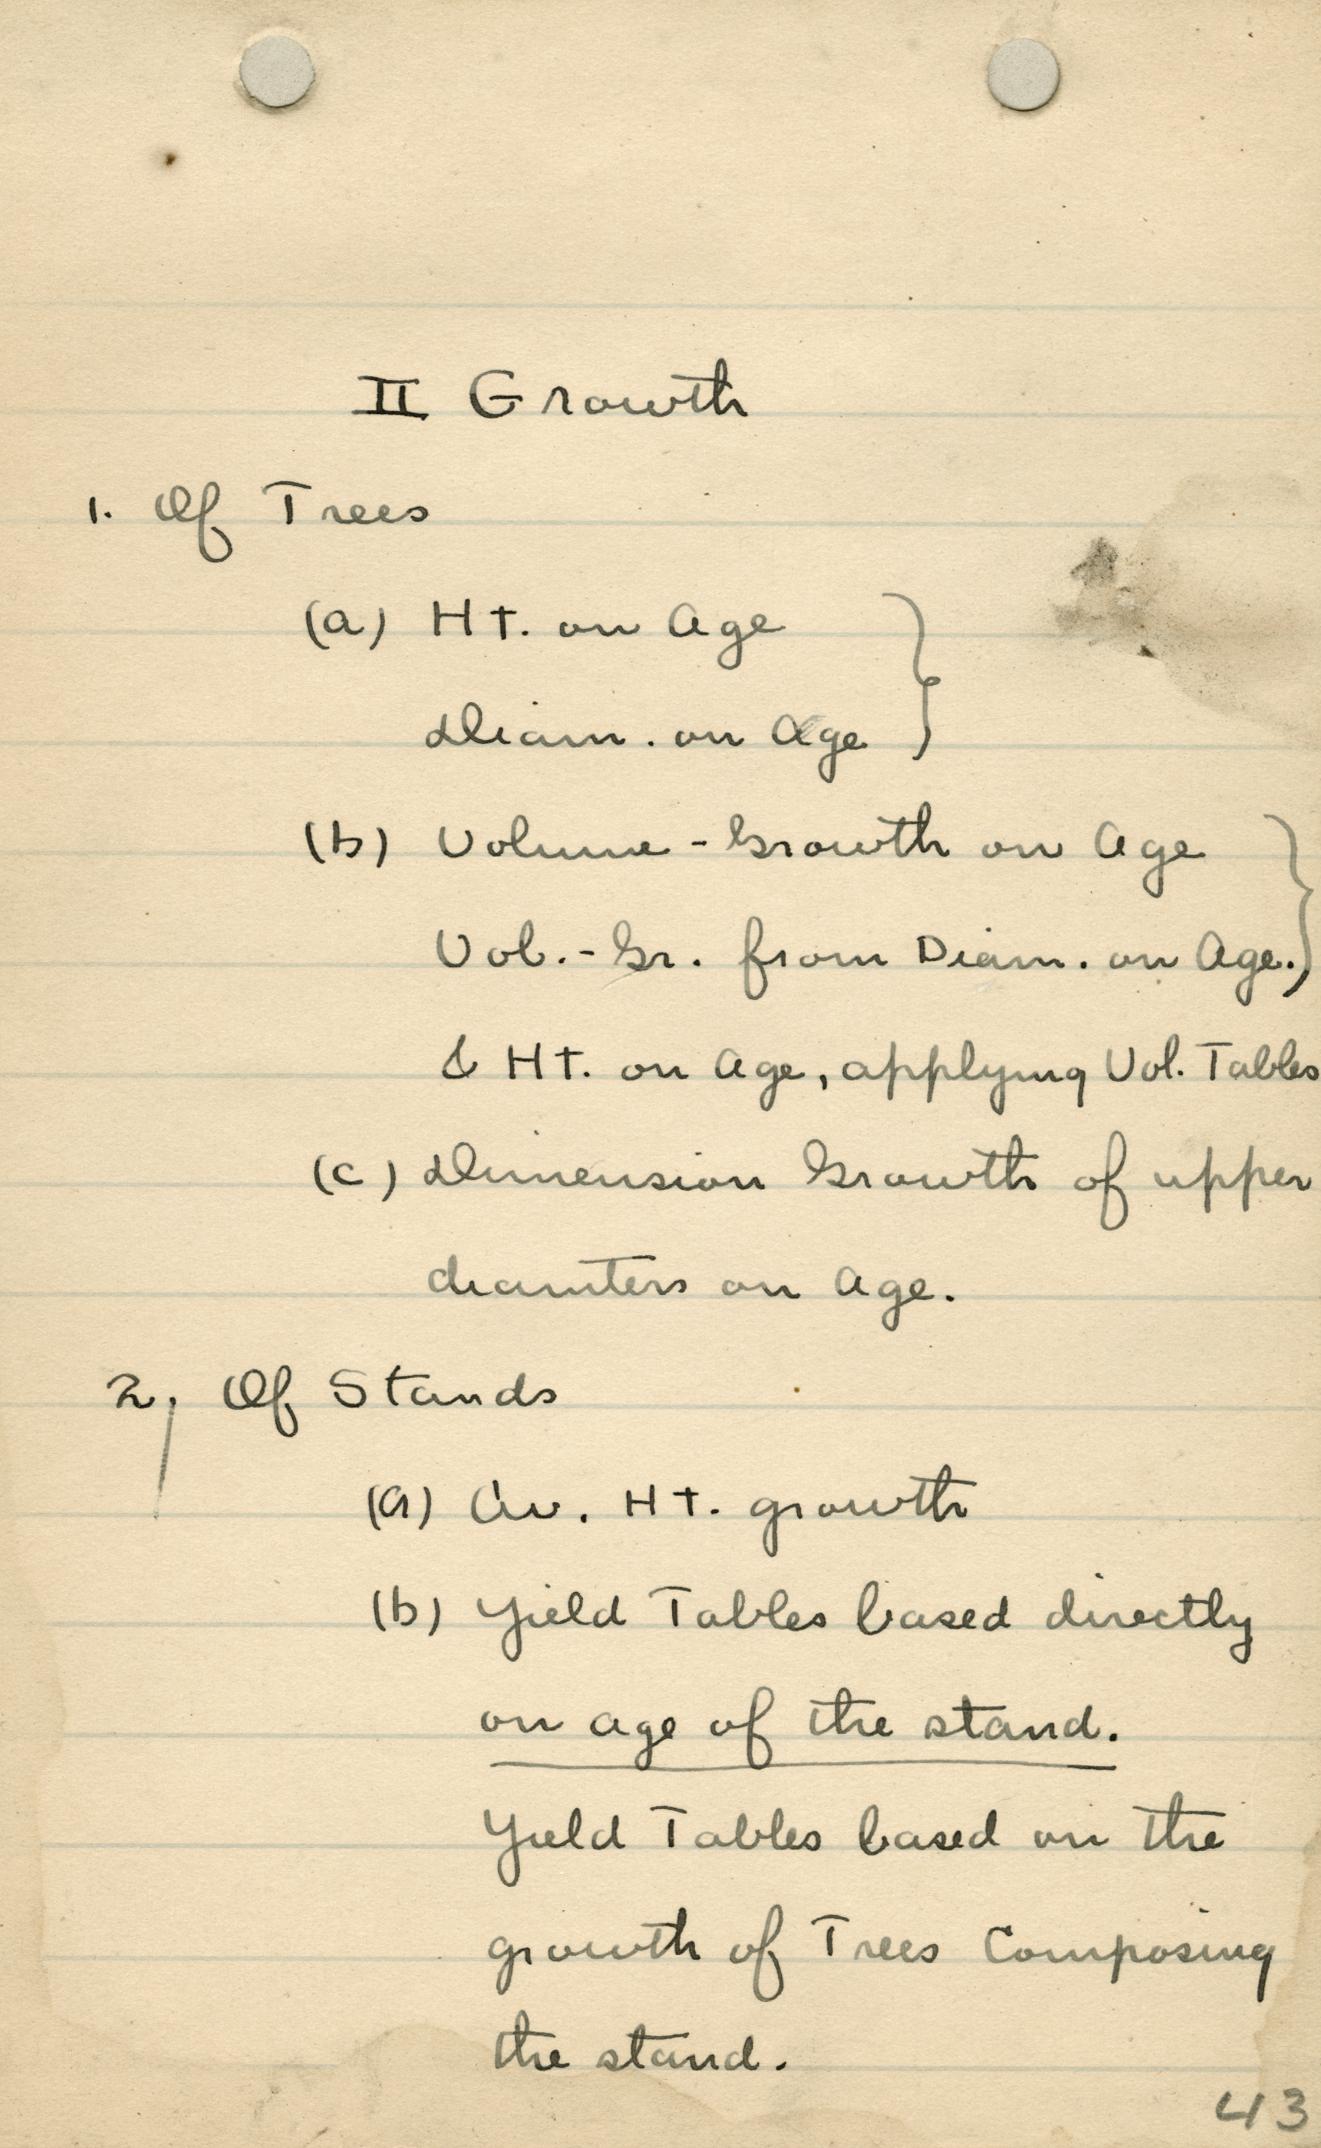 II Growth
1. Of Trees
(a) Ht. on Age
Diam. on Age
(b) Volume - Growth on Age
Vol. - Gr. from Diam. on Age.
& Ht. on Age, applying Vol. Tables
(c) Dimension Growth of upper
diamters on Age.
2. Of Stands
(a) Av. Ht. growth
(b) Yield Tables based directly
on age of the stand.
Yield Tables based on the
growth of Trees Composing
the stand.
43